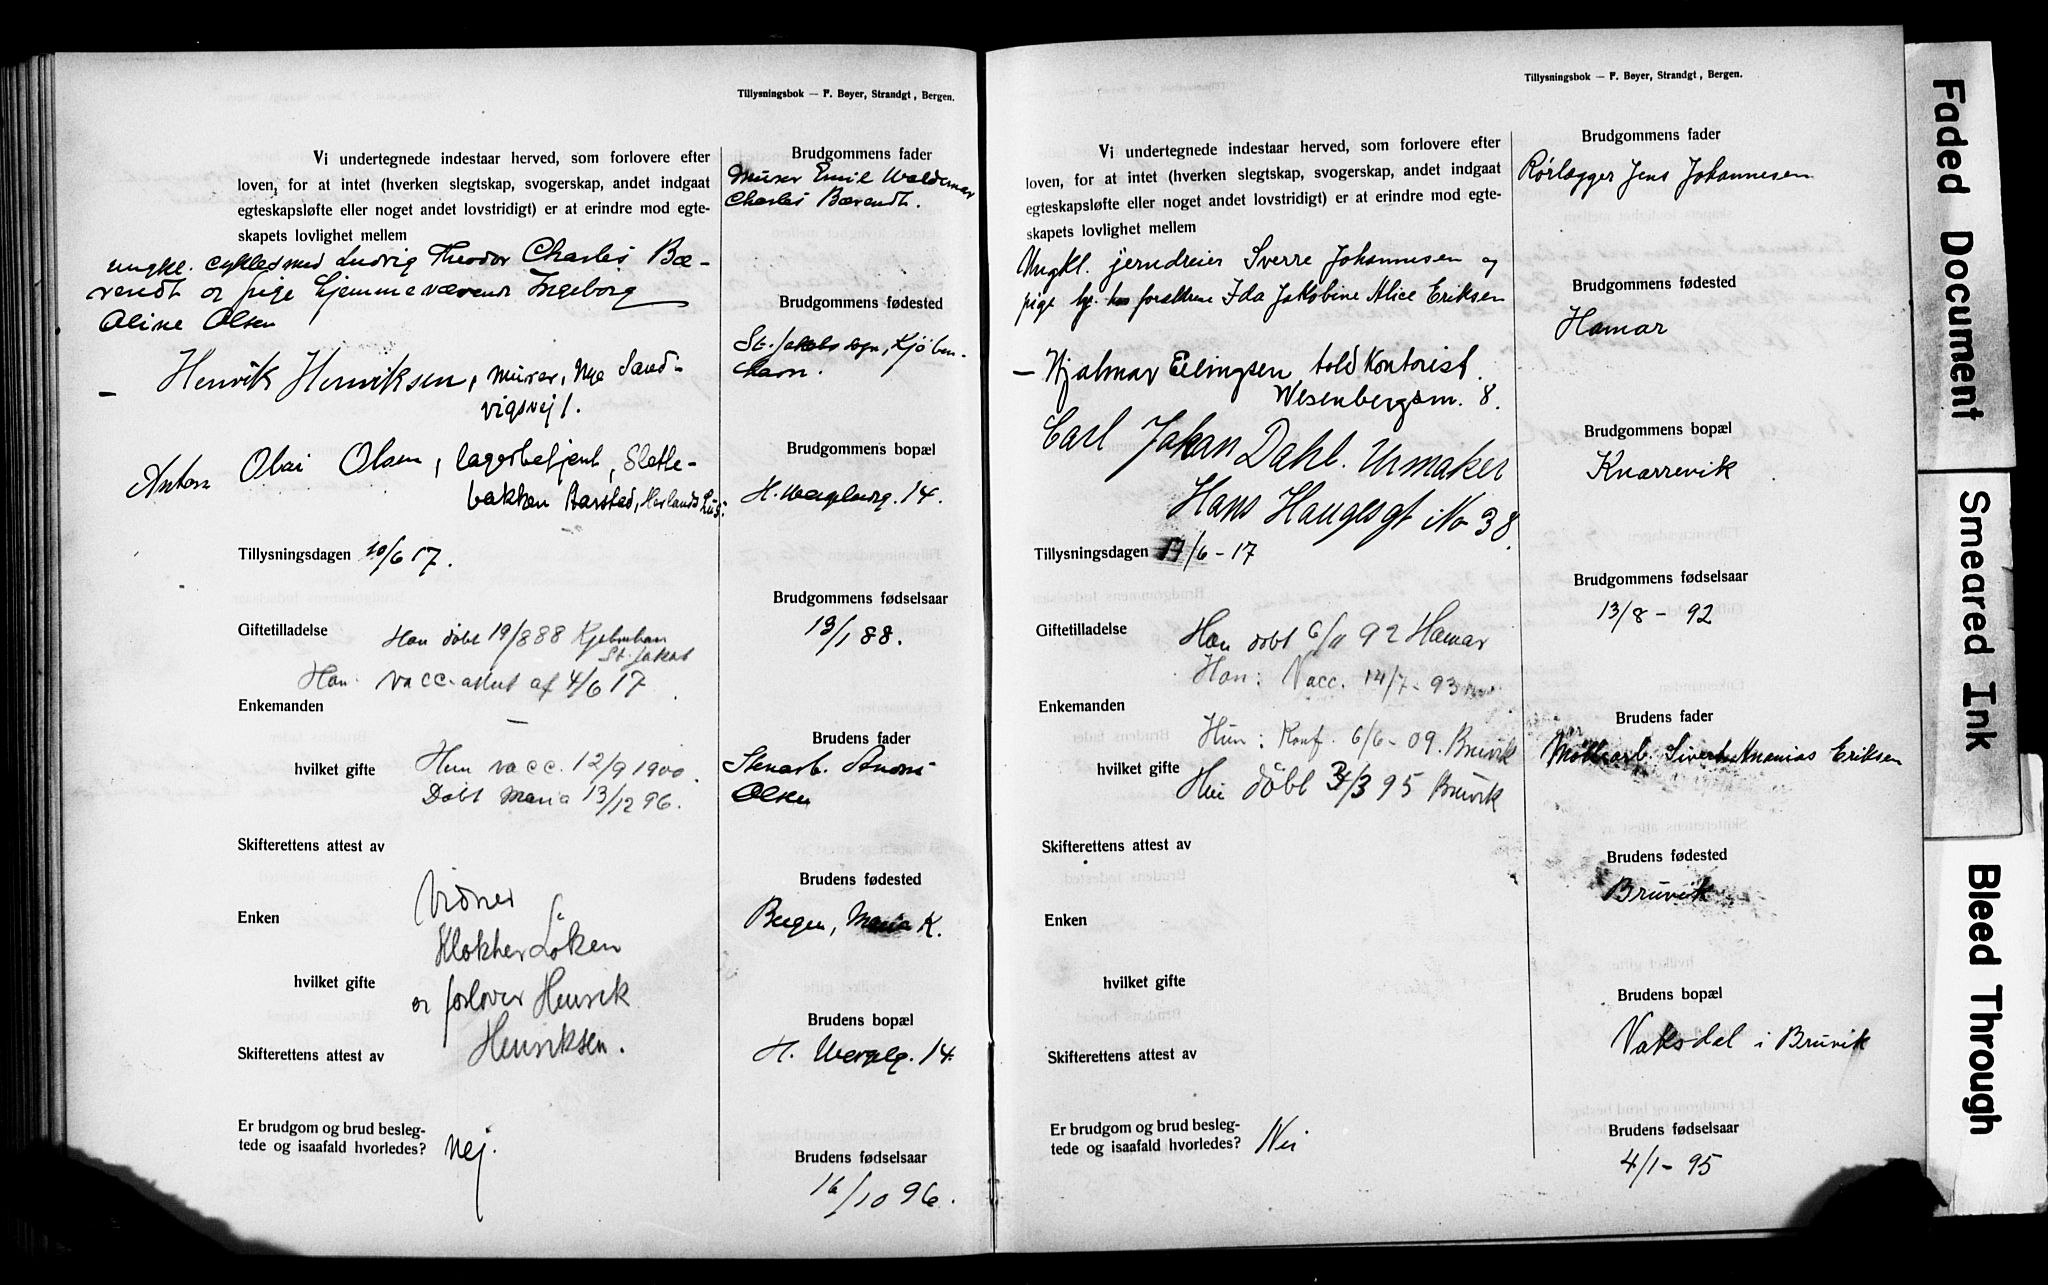 Tillysningsbok — F. Bøyer, Strandgt, Bergen.
Vi undertegnede indestaar herved, som forlovere efter
loven, for at intet (hverken slegtskap, svogerskap, andet indgaat
egteskapsløfte eller noget andet lovstridigt) er at erindre mod egte-
skapets lovlighet mellem
ungkl. cyklesmed Ludvig Theodor Charles Bæ-
rendt og pige hjemmeværende Ingeborg
Oline Olsen
— Henrik Henriksen, murer, Nye Sand-
vigsvej 1.
Anton Olai Olsen, lagerbetjent, Slette-
bakken Aarstad,
Tillysningsdagen 10/6 17.
Giftetilladelse Han døbt 19/8 88 Kjøbenhavn
St. Jakob
Han vacc. attest af 4/6 17
Enkemanden —
hvilket gifte Hun vacc. 12/9 1900.
Døbt Maria 13/12 96.
Skifterettens attest av
Vidner
Enken Klokker Løken
hvilket gifte og forlover Henrik
Skifterettens attest av Henriksen.
Er brudgom og brud besleg-
tede og isaafald hvorledes? Nej.
Brudgommens fader
Murer Emil Waldemar
Charles Bærendt.
Brudgommens fødested
St. Jakobs sogn, Kjøben-
havn.
Brudgommens bopæl
H. Wergelandsg. 14.
Brudgommens fødselsaar
13/1 88.
Brudens fader
Stenarb. Andreas
Olsen
Brudens fødested
Bergen, Maria K.
Brudens bopæl
H. Wergelg. 14
Brudens fødselsaar
16/10 96.
Tillysningsbok — F. Bøyer, Strandgt, Bergen.
Vi undertegnede indestaar herved, som forlovere efter
loven, for at intet (hverken slegtskap, svogerskap, andet indgaat
egteskapsløfte eller noget andet lovstridigt) er at erindre mod egte-
skapets lovlighet mellem
Ungkl. jerndreier Sverre Johannesen og
pige hj. hos forældrene Ida Jakobine Alice Eriksen
— Hjalmar Ellingsen toldkontorist.
Wesenbergsm. 8.
Carl Johan Dahl. Urmaker
Hans Haugesgt No 38.
Tillysningsdagen 17/6-17
Giftetilladelse Han døbt 6/11 92 Hamar
Han: Vacc. 14/7-93
Enkemanden
Hun: Konf. 6/6-09. Bruvik
hvilket gifte Hun døbt 3/3 95 Bruvik
Skifterettens attest av
Enken
hvilket gifte
Skifterettens attest av
Er brudgom og brud besleg-
tede og isaafald hvorledes? Nei
Brudgommens fader
Rørlægger Jens Johannesen
Brudgommens fødested
Hamar
Brudgommens bopæl
Knarrevik
Brudgommens fødselsaar
13/8-92
Brudens fader
Møllearb. Sivert Ananias Eriksen
Brudens fødested
Bruvik
Brudens bopæl
Vaksdal i Bruvik
Brudens fødselsaar
4/1-95
Faded Document
Smeared Ink
Bleed Through